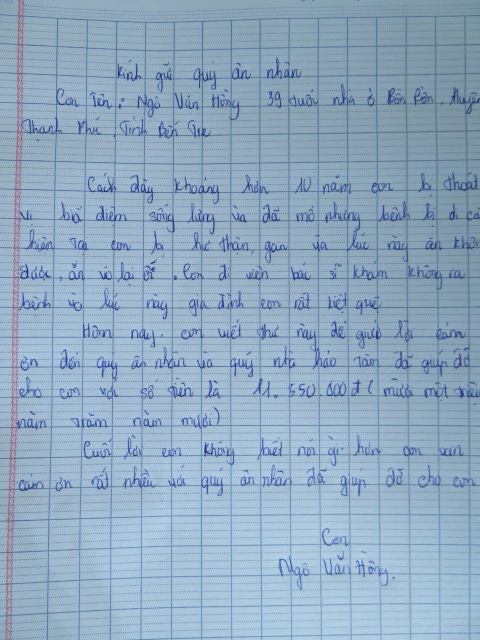 Kính gửi quý ân nhân
Con Tên: Ngô Văn Hồng 39 tuổi nhà ở Bồn Bồn, Huyện
Thạnh Phú, Tỉnh Bến Tre
Cách đây khoảng hơn 10 năm con bị thoát
vị biã điệm sống lưng và đã mổ nhưng bệnh bị di că
hiện tại con bị hư thận, gan và lúc này ăn khôn
được, ăn vô lại ối. Con đi viện bác sĩ khám không ra
bệnh và lúc này gia đình con rất kiệt quệ
Hôm nay con viết thư này để gửi lời cảm
ơn đến quý ân nhân và quý nhà hảo tâm đã giúp đỡ
cho con với số tiền là 11.550.000đ (mười một triệu
năm trăm năm mươi)
Cuối lời con không biết nói gì hơn con xin
cảm ơn rất nhiều với quý ân nhân đã giúp đỡ cho con
Con
Ngô Văn Hồng.